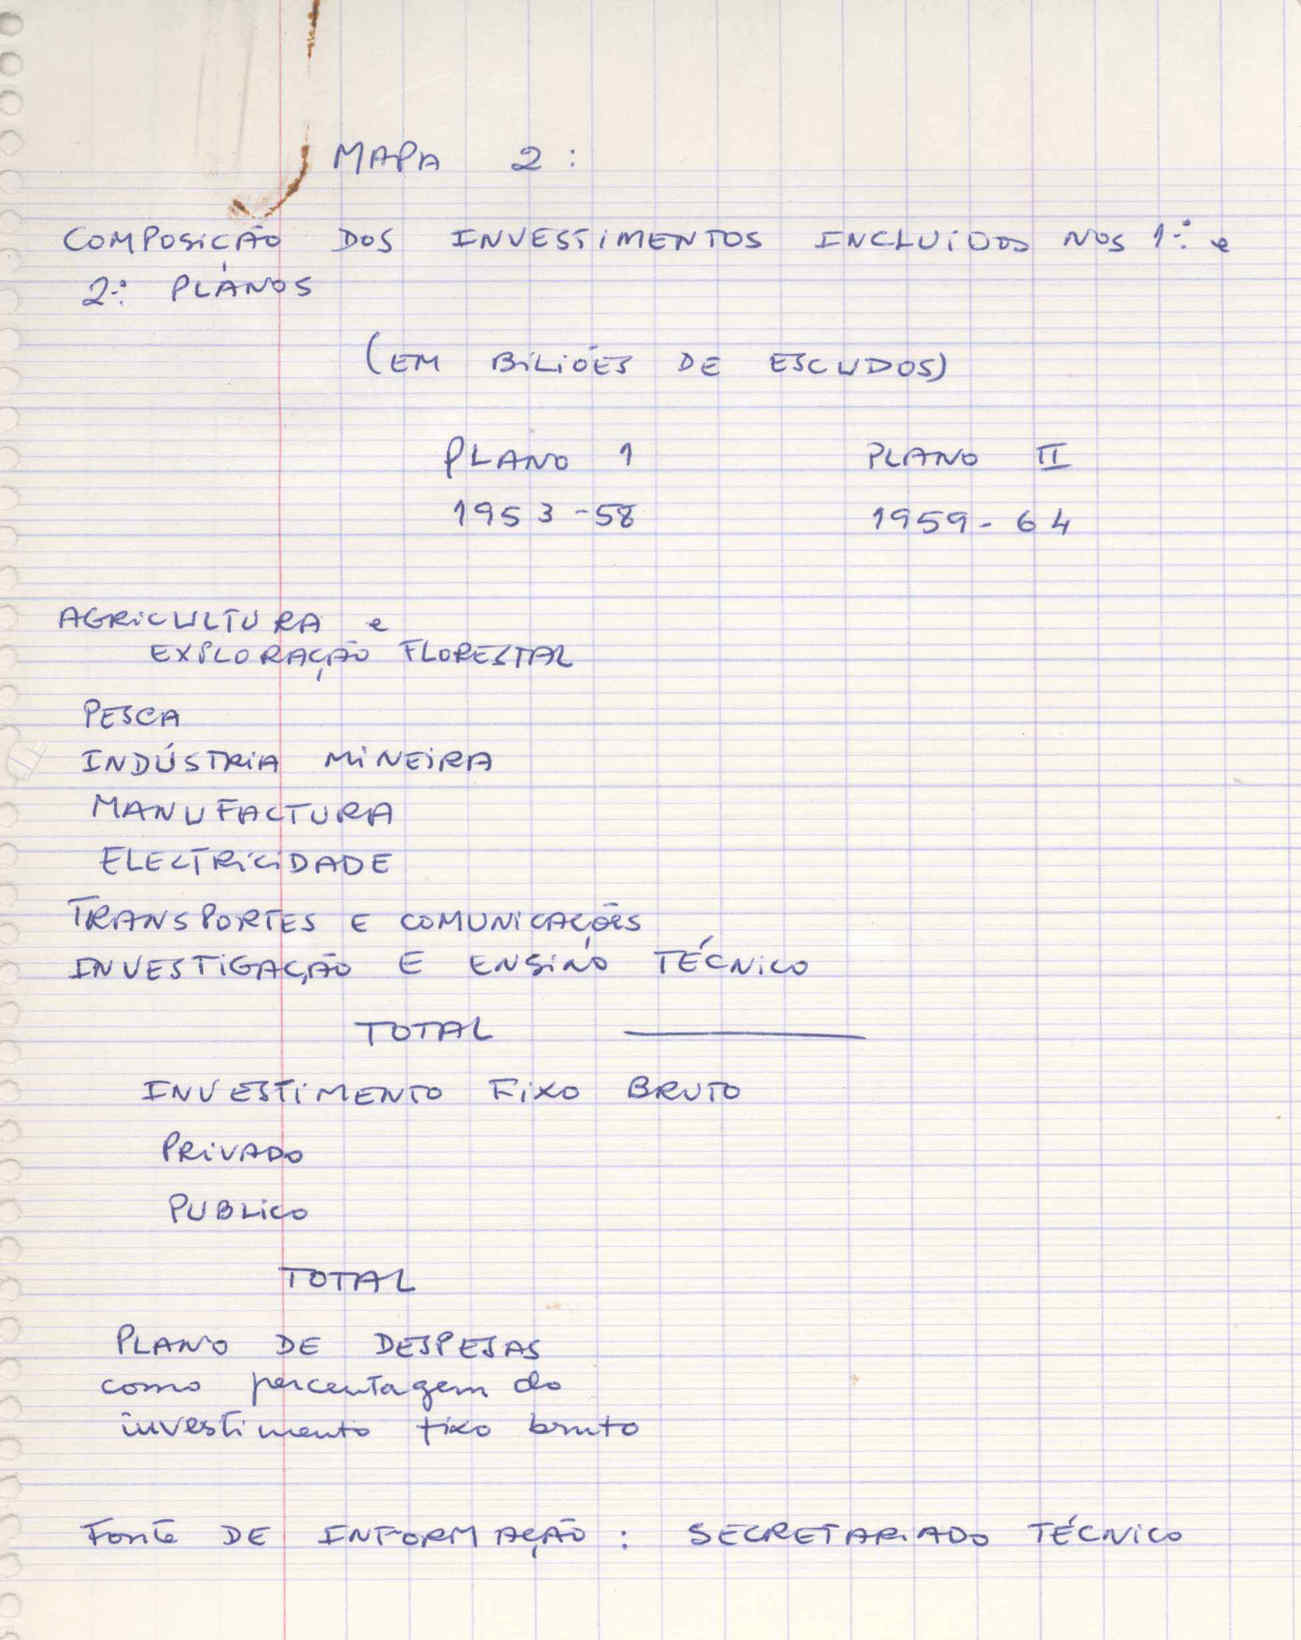 MAPA 2:
COMPOSIÇÃO DOS INVESTIMENTOS INCLUIDOS NOS 1º e
2º PLANOS
(EM BILIÕES DE ESCUDOS)
PLANO 1 PLANO II
1953-58 1959-64
AGRICULTURA e
EXPLORAÇÃO FLORESTAL
PESCA
INDÚSTRIA MINEIRA
MANUFACTURA
ELECTRICIDADE
TRANSPORTES E COMUNICAÇÕES
INVESTIGAÇÃO E ENSINO TÉCNICO
TOTAL
INVESTIMENTO FIXO BRUTO
PRIVADO
PUBLICO
TOTAL
PLANO DE DESPESAS
como percentagem do
investimento fixo bruto
Fonte DE INFORMAÇÃO: SECRETARIADO TÉCNICO